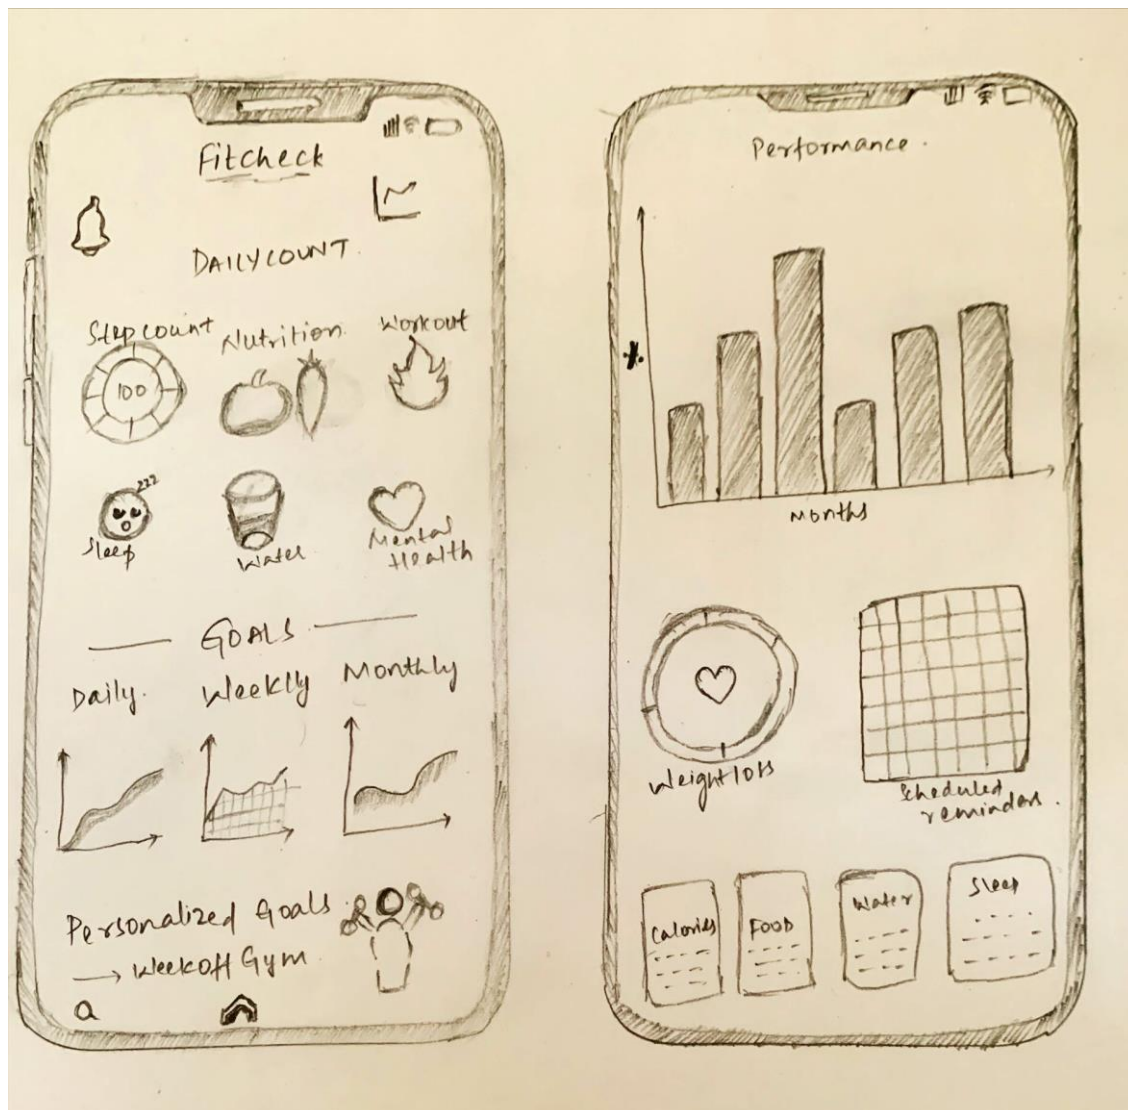 FitCheck
DAILY COUNT.
Step count Nutrition. Workout
100
zzz
Sleep Water Mental
Health
GOALS
Daily. Weekly Monthly
Personalized Goals
→ Week off Gym
Performance.
%
Months
Weight loss
Scheduled
reminders.
Calories FOOD Water Sleep